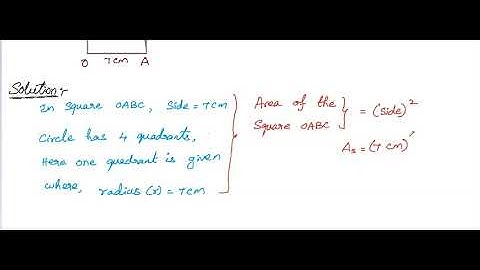 O 7cm A
Solution:-
In Square OABC, Side = 7cm
Circle has 4 quadrants,
Here one quadrant is given
where, radius (r) = 7cm
Area of the
Square OABC } = (Side)²
As = (7 cm)²